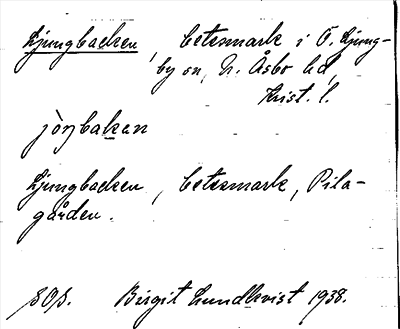 Ljungbacken, betesmark i Ö. Ljung-
by sn, N. Åsbo hd,
Krist. l.
jòŋbakan
Ljungbacken, betesmark, Pila-
gården.
Birgit Lundkvist 1938.